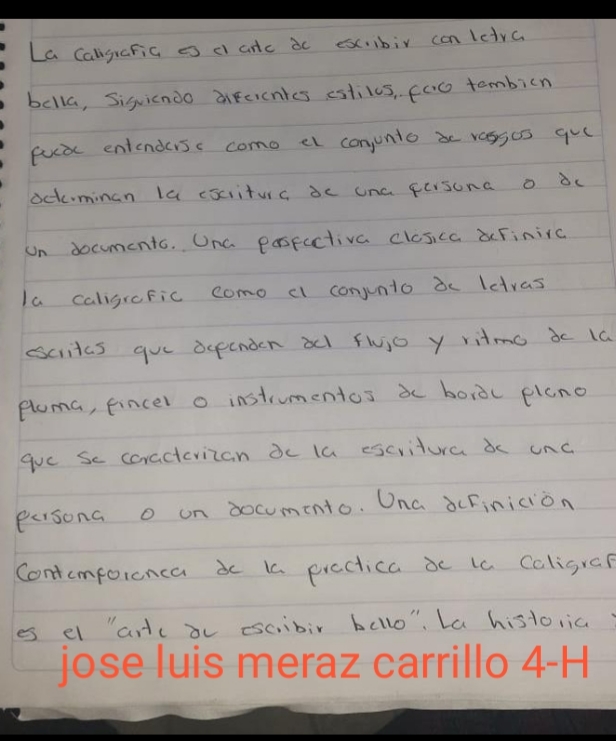 La caligrafia es el arte de escribir con letra
bella, siguiendo diferentes estilos, pero tambien
puede entenderse como el conjunto de rasgos que
determinan la escritura de una persona o de
un documento. Una perspectiva clasica definira
la caligrafia como el conjunto de letras
escritas que dependen del flujo y ritmo de la
pluma, pincel o instrumentos de borde plano
que se caracterizan de la escritura de una
persona o un documento. Una definición
contemporanea de la practica de la caligraf
es el "arte de escribir bello". La historia
jose luis meraz carrillo 4-H